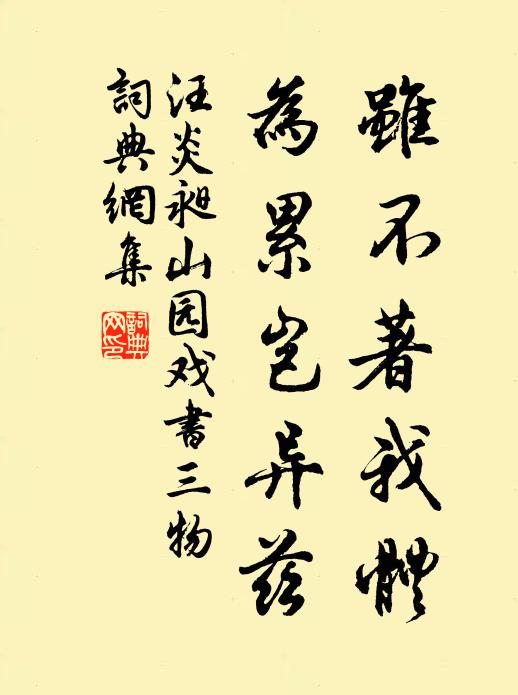 雖不著我體
為累豈异茲
汪炎昶山园戏書三物
詞典網集
詞典
网印